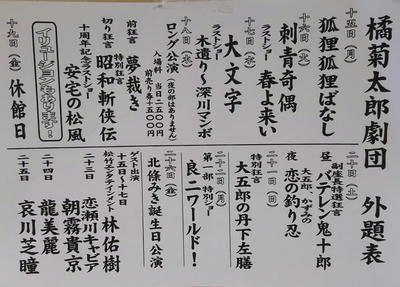 橘菊太郎劇団　外題表
十五日（月）
狐狸狐狸ばなし
十六日（火）
刺青奇偶
ラストショー
春よ来い
十七日（水）
大文字
ラストショー
木遣り～深川マンボ
十八日（木）
ロング公演（夜の部はありません）
入場料　当日二五〇〇円
前売り券十五〇〇円
前狂言
夢裁き
切り狂言
特別狂言
昭和斬侠伝
十周年記念ラストショー
安宅の松風
イリュージョンもやります！
十九日（金）
休館日
二十日（土）
副座長特選狂言
昼
バテレン鬼十郎
大五郎、かずみの
夜
恋の釣り忍
二十一日（日）
特別狂言
大五郎の丹下左膳
二十二日（月）
第一部　特別ショー
良二ワールド！
二十六日（金）
北條みき誕生日公演
ゲスト出演
十五日～十七日
松竹エンタテイメント　林佑樹
二十三日
恋瀬川キャビア
朝霧貴京
二十四日
龍美麗
二十五日
哀川芝瞳